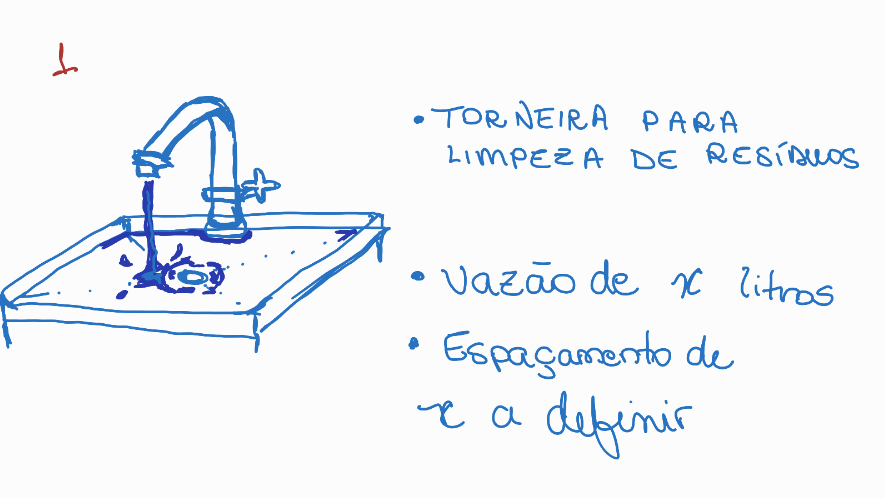 1
• TORNEIRA PARA
LIMPEZA DE RESÍDUOS
• Vazão de x litros
• Espaçamento de
x a definir